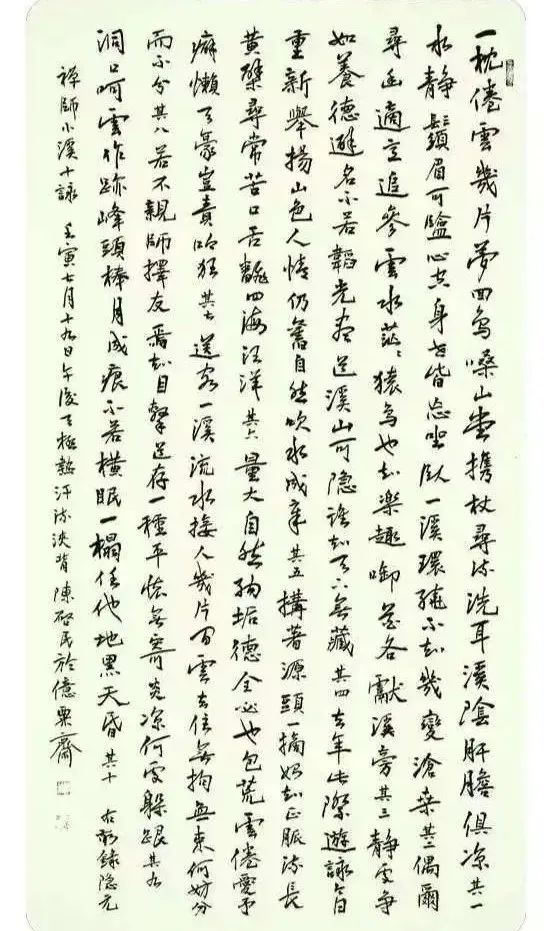 一枕倦雲幾片夢回鳥噪山堂攜杖尋流洗耳溪陰肝膽俱涼其一
水靜鬚眉可鹽心空身世皆忘坐臥一溪環繞不知幾變滄桒其二偶爾
尋幽適意追參雲水茫々猿鳥也知樂趣啣花各獻溪旁其三靜處爭
如養德避名不若韜光盡道溪山可隱誰知天下無藏其四去年此際遊詠今日
重新舉揚山色人情仍舊自然吹水成章其五搆著源頭一摘始知正脈流長
黃檗尋常苦口舌翻四海汪洋其六量大自然納垢德全必也包荒雲倦處予
癖懶天豪豈責吟狂其七送客一溪流水接人幾片閒雲去住無拘無束何妨分
而不分其八若不親師擇友焉知目擊道存一種平懷無寄炎涼何處躲跟其九
洞口呵雲作跡峰頭棒月成痕不若橫眠一榻任他地黑天昏其十右節錄隱元
禪師小溪十詠壬寅七月十九日午後天極熱汗流浹背陳啟民於億粟齋